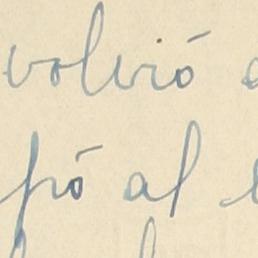 volvió
pó al